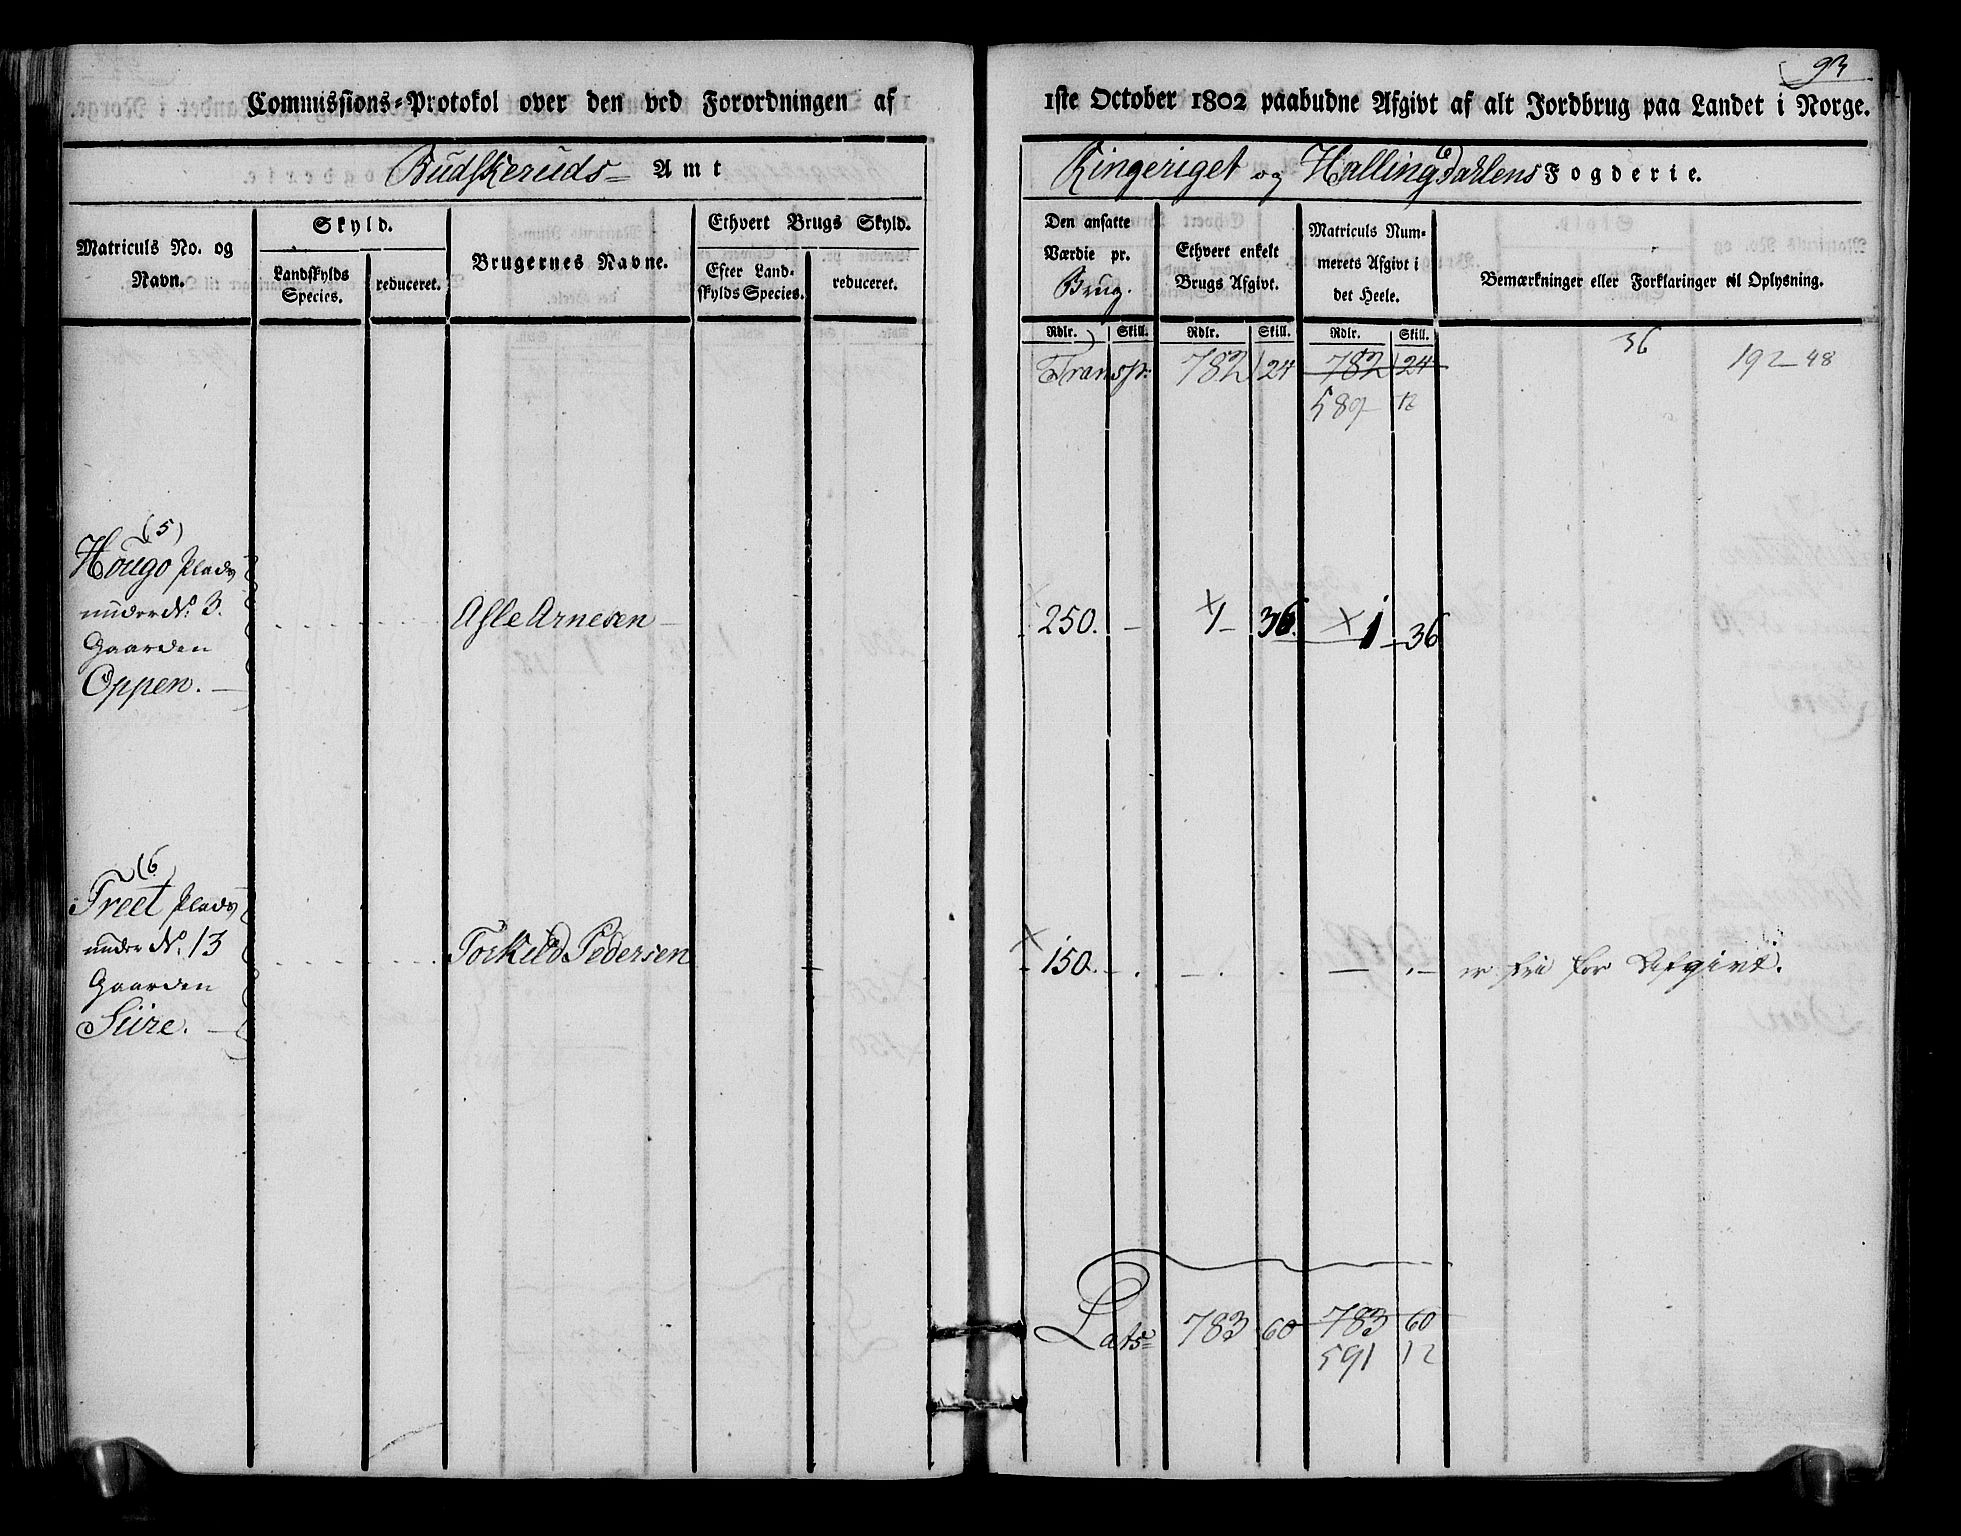 93
Commissions-Protokol over den ved Forordningen af 1ste October 1802 paabudne Afgivt af alt Jordbrug paa Landet i Norge.
Budskeruds Amt
Ringeriget og Hallingdahlens Fogderie.
Matriculs No. og Navn.
Skyld.
Landskylds Species.
reduceret.
Brugernes Navne.
Ethvert Brugs Skyld.
Efter Landskylds Species.
reduceret.
Den ansatte Værdie pr. Brug.
Rdlr. Skill.
Ethvert enkelt Brugs Afgivt.
Rdlr. Skill.
Matriculs Nummerets Afgivt i det Heele.
Rdlr. Skill.
Bemærkninger eller Forklaringer til Oplysning.
36
Transp: 782 24 782 24 192-48
589 12
(5)
Hougo Plads
under No. 3.
Gaarden
Oppen.
Asle Arnesen 250. - 1 36. 1 36
(6)
Treet Plads
under No. 13
Gaarden
Siire.
Torkild Pedersen 150. - er frie for Afgivt.
Lats 783 60 783 60
591 12